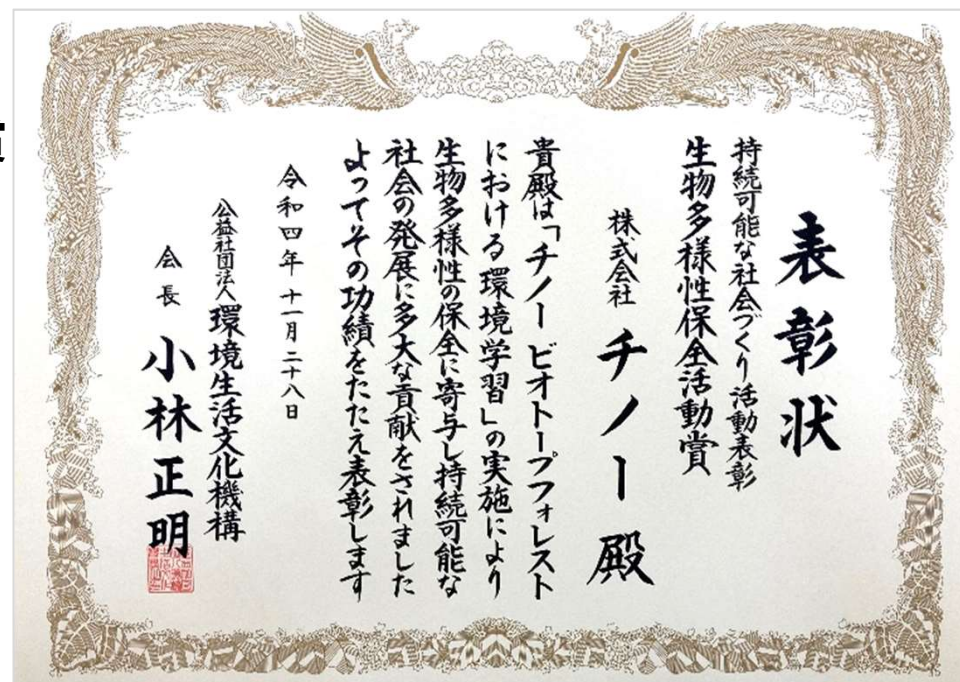 表彰状
持続可能な社会づくり活動表彰
生物多様性保全活動賞
株式会社 チノー 殿
貴殿は「チノー ビオトープフォレスト
における環境学習」の実施により
生物多様性の保全に寄与し持続可能な
社会の発展に多大な貢献をされました
よってその功績をたたえ表彰します
令和四年 十一月二十八日
公益社団法人 環境生活文化機構
会長 小林正明